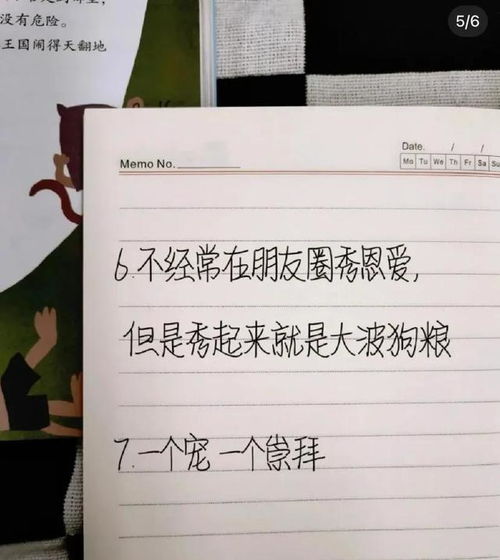 没有危险。
王国闹得天翻地
5/6
Date. / /
Memo No.
Mo Tu We Th Fr Sa Su
6.不经常在朋友圈秀恩爱,
但是秀起来就是大波狗粮
7.一个宠 一个崇拜